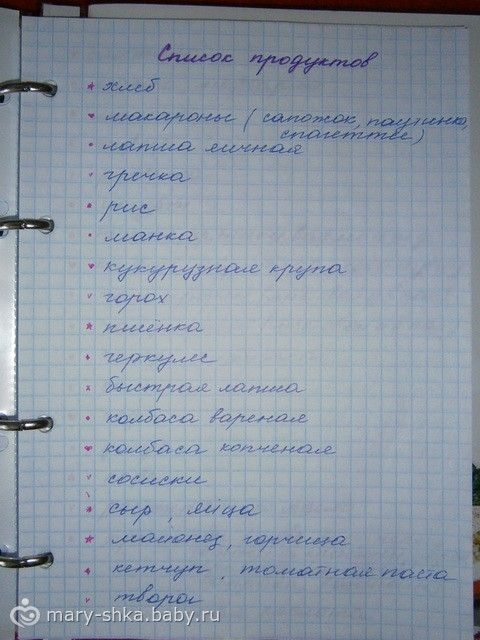 Список продуктов
хлеб
макароны (сапожок, паутинка,
спагетти)
лапша яичная
гречка
рис
манка
кукурузная крупа
горох
пшёнка
геркулес
быстрая лапша
колбаса вареная
колбаса копченая
сосиски
сыр, яйца
майонез, горчица
кетчуп, томатная паста
творог
mary-shka.baby.ru